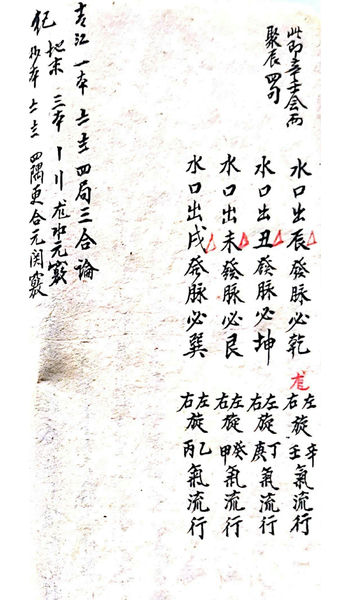 此即辛壬会而
聚辰四句
水口出辰發脈必乾 左旋辛 右旋壬 氣流行
水口出丑發脈必坤 左旋丁 右旋庚 氣流行
水口出未發脈必艮 左旋癸 右旋甲 氣流行
水口出戌發脈必巽 左旋乙 右旋丙 氣流行
江一本 四局三合論
地末 三本 水元竅
四隅更合元関竅